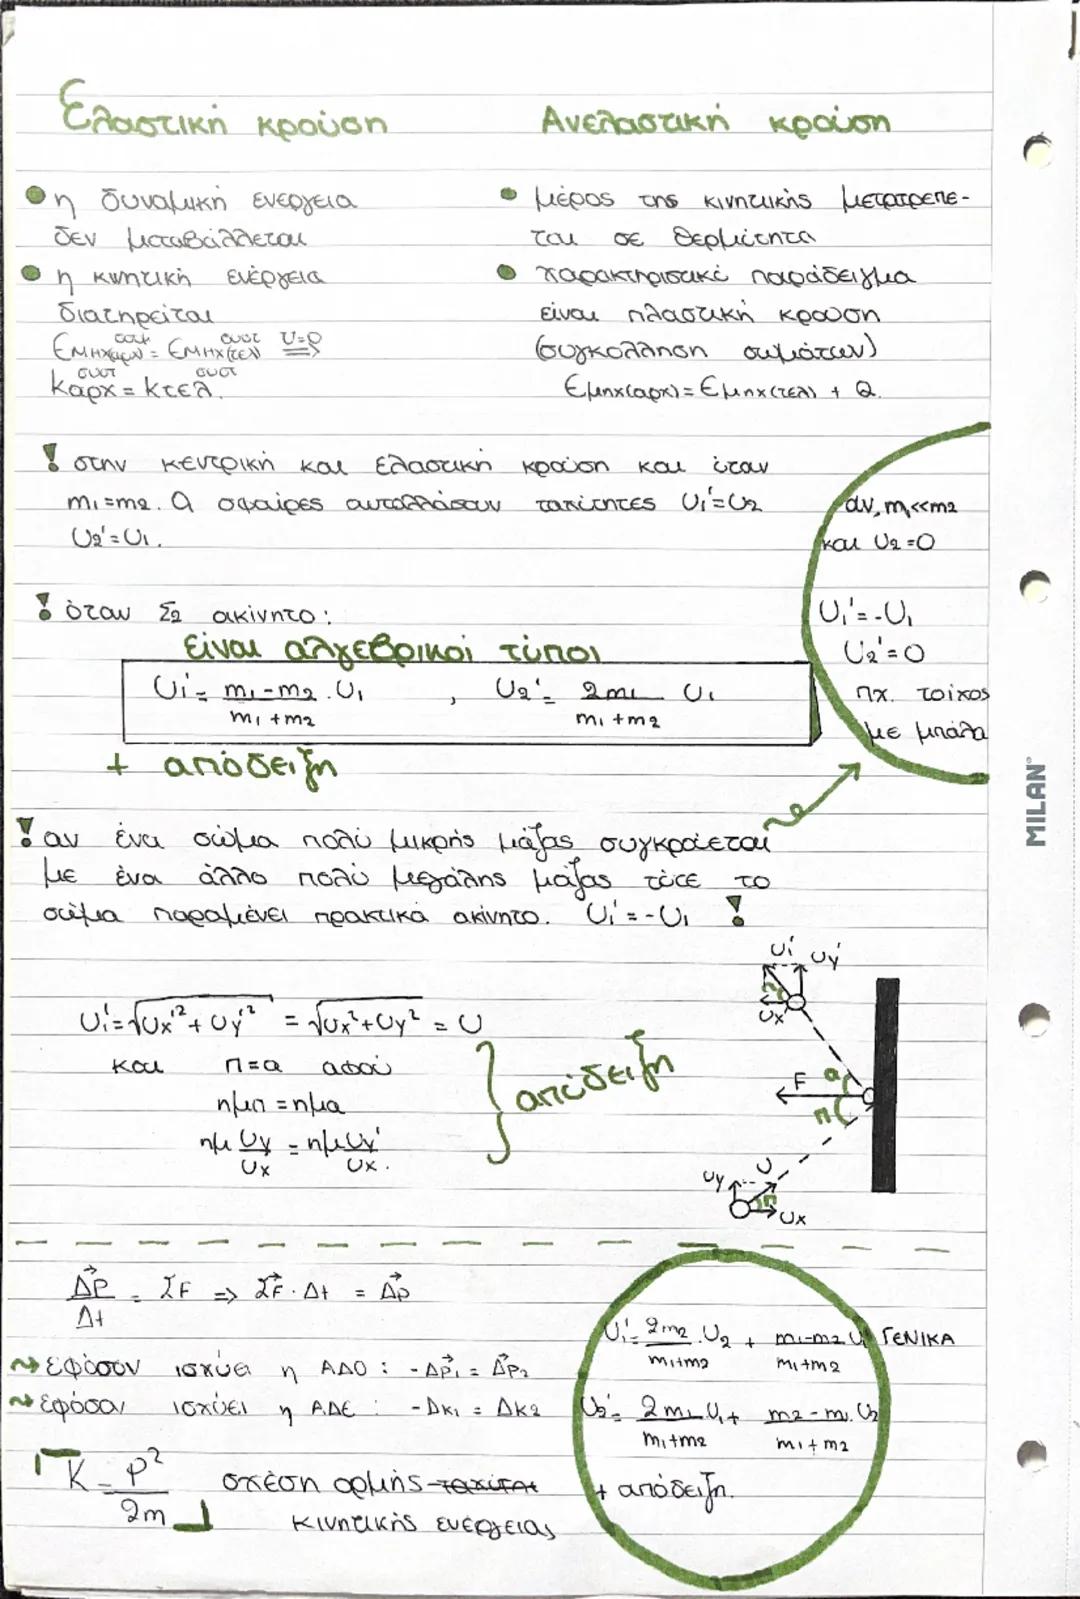 Ελαστική κρούση
Ανελαστική κρούση
η δυναμική ενέργεια
δεν μεταβάλλεται
η κινητική ενέργεια
διατηρείται
συστ συστ U=0
Εμηχ(αρχ) = Εμηχ(τελ) =>
συστ συστ
Kαρχ = Kτελ.
μέρος της κινητικής μετατρέπε-
ται σε θερμότητα
χαρακτηριστικό παράδειγμα
είναι πλαστική κρούση
(συγκόλληση σωμάτων)
Εμηχ(αρχ) = Εμηχ(τελ) + Q.
! στην κεντρική και ελαστική κρούση και όταν
m1=m2. Οι σφαίρες ανταλλάσουν ταχύτητες U1'=U2
U2'=U1.
αν m1<<m2
και U2=0
U1'=-U1
U2'=0
πχ. τοίχος
με μπάλα
! όταν Σ2 ακίνητο:
είναι αλγεβρικοί τύποι
U1'= m1-m2 . U1 , U2'= 2m1 U1
m1+m2 m1+m2
+ απόδειξη
! αν ένα σώμα πολύ μικρής μάζας συγκρούεται
με ένα άλλο πολύ μεγάλης μάζας τότε το
σώμα παραμένει πρακτικά ακίνητο. U1'=-U1 !
U1'=√Ux'²+Uy'² = √Ux²+Uy² = U
και π=α αφού
ημπ=ημα
ημ Uy = ημ Uy'
Ux Ux.
απόδειξη
U1' Uy'
Ux'
F α
π
Uy U
π Ux
ΔP = ΣF => ΣF · Δt = Δp
Δt
εφόσον ισχύει η ΑΔΟ : -ΔP1 = ΔP2
εφόσον ισχύει η ΑΔΕ : -ΔK1 = ΔK2
K = P²
2m
σχέση ορμής ταχύτητ
κινητικής ενέργειας
U1'= 2m2 . U2 + m1-m2 U1 ΓΕΝΙΚΑ
m1+m2 m1+m2
U2'= 2m1 U1 + m2-m1. U2
m1+m2 m1+m2
+ απόδειξη.
MILAN®